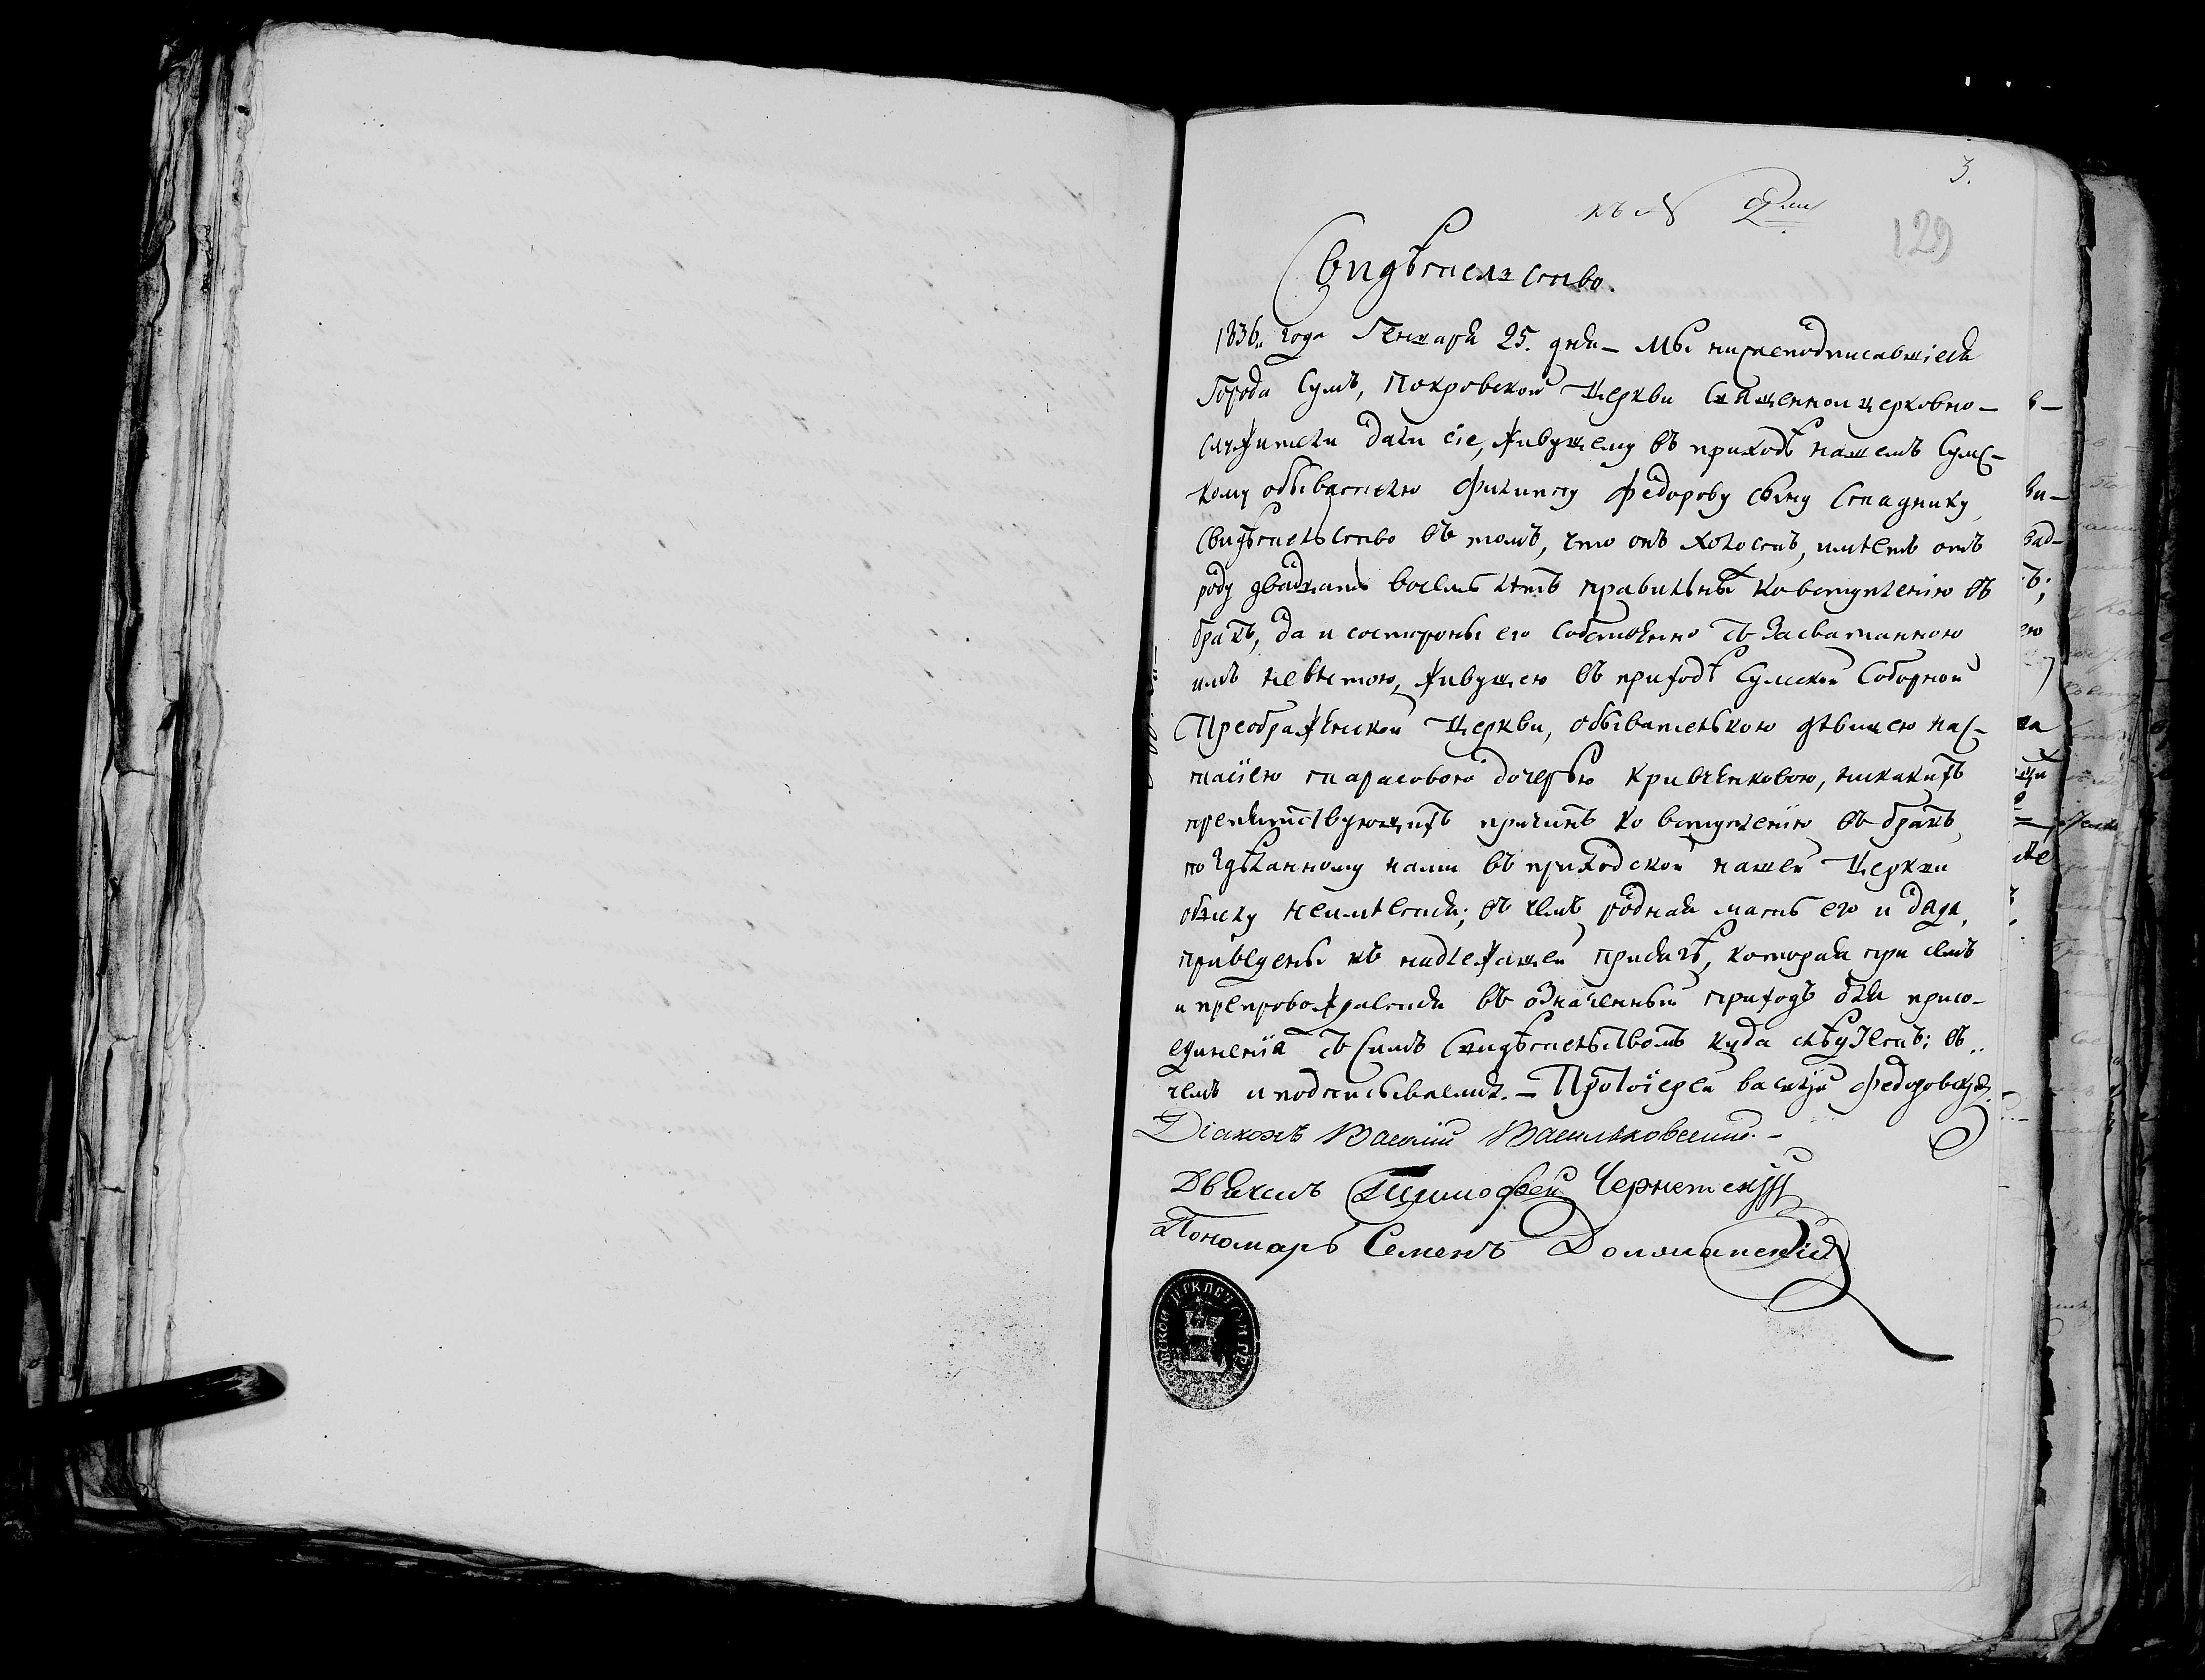 3.
къ №
129
Свидѣтельство.
1836. года Генваря 25. дня — Мы нижеподписавшіеся
Города Сумъ, Покровской Церкви Священноицерковно-
служители дали сіе, живущему въ приходѣ нашемъ Сумс-
кому обывателю Филипу Федорову сыну Спаднику
свидѣтельство въ томъ, что онъ холостъ, имѣетъ отъ
роду двадцать восемь лѣтъ правильныхъ ко вступленію въ
бракъ, да и состороны его собственно съ Засватанною
имъ невѣстою, живущею въ приходѣ Сумской Соборной
Преображенской Церкви, обывательскою дѣвицею Нас-
тасіею Тарасовою дочерью Кривенковою, никакихъ
препятствующихъ причинъ ко вступленію въ бракъ
по здѣланному нами въ приходской нашей Церкви
обыску неимѣется; въ чемъ родная мать его и дядя,
приведены къ надлежащей присягѣ, которая при семъ
и препровождается въ означенный приходъ для присо-
единенія съ симъ Свидѣтельствомъ куда слѣдуетъ; въ
чемъ и подписываемся. — Протоіерей Василій Федоровскій.
Діаконъ Василій Васильковскій. —
Дьячекъ Тимофей Чернетскій
Пономарь Семенъ